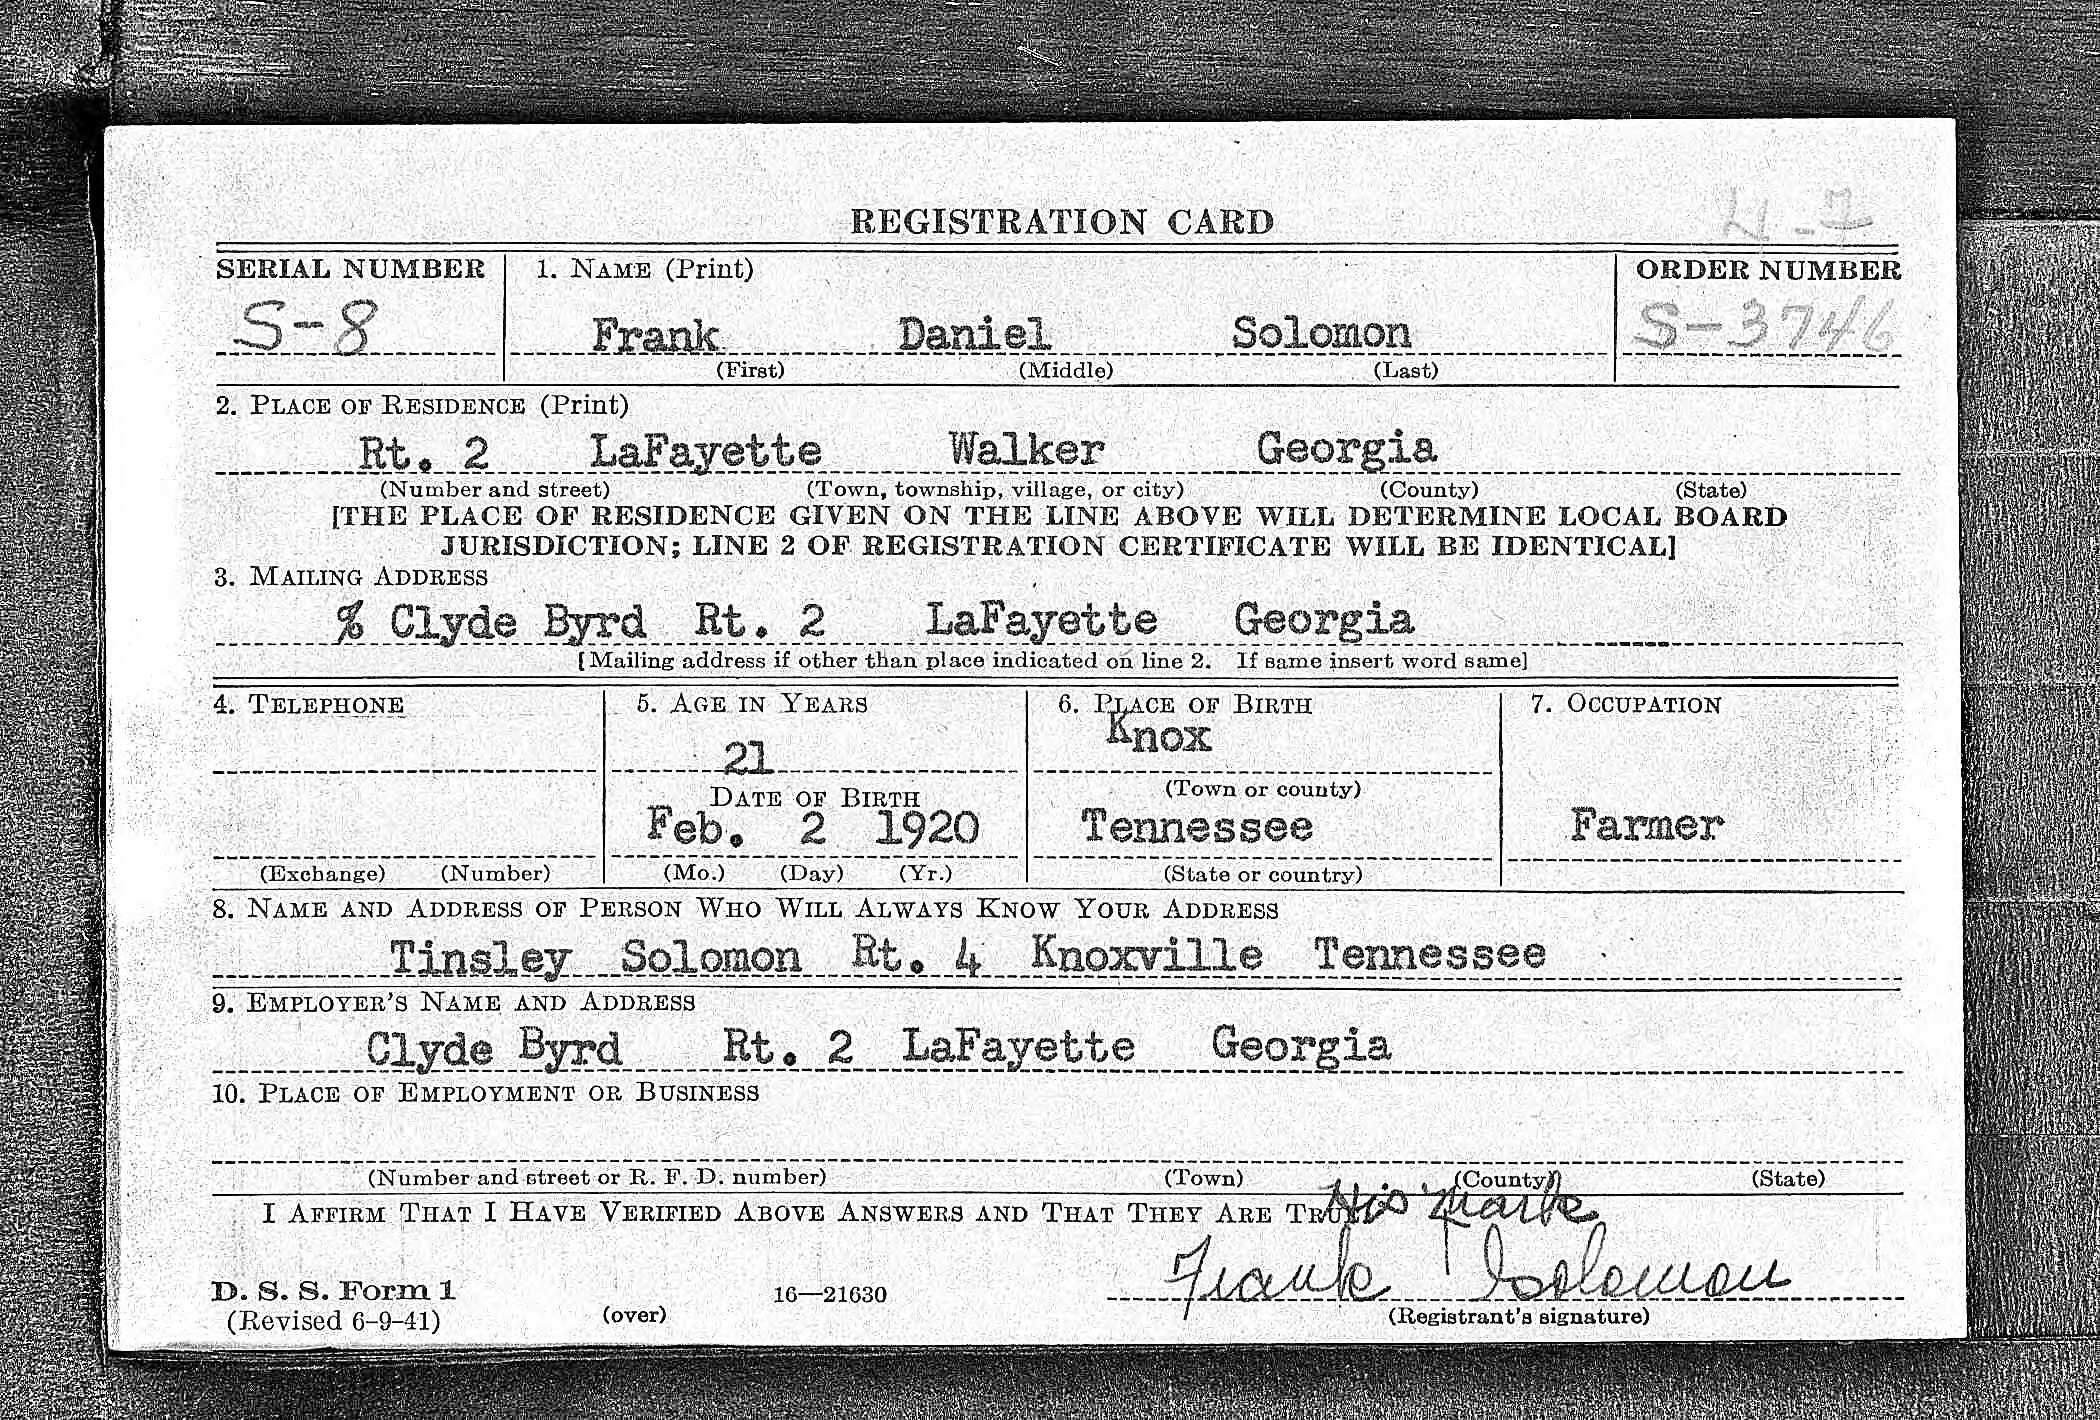 4-7
REGISTRATION CARD
SERIAL NUMBER 1. NAME (Print) ORDER NUMBER
S-8 Frank Daniel Solomon S-3746
(First) (Middle) (Last)
2. PLACE OF RESIDENCE (Print)
Rt. 2 LaFayette Walker Georgia
(Number and street) (Town, township, village, or city) (County) (State)
[THE PLACE OF RESIDENCE GIVEN ON THE LINE ABOVE WILL DETERMINE LOCAL BOARD
JURISDICTION; LINE 2 OF REGISTRATION CERTIFICATE WILL BE IDENTICAL]
3. MAILING ADDRESS
% Clyde Byrd Rt. 2 LaFayette Georgia
[Mailing address if other than place indicated on line 2. If same insert word same]
4. TELEPHONE 5. AGE IN YEARS 6. PLACE OF BIRTH 7. OCCUPATION
21 Knox
DATE OF BIRTH (Town or county)
Feb. 2 1920 Tennessee Farmer
(Exchange) (Number) (Mo.) (Day) (Yr.) (State or country)
8. NAME AND ADDRESS OF PERSON WHO WILL ALWAYS KNOW YOUR ADDRESS
Tinsley Solomon Rt. 4 Knoxville Tennessee
9. EMPLOYER'S NAME AND ADDRESS
Clyde Byrd Rt. 2 LaFayette Georgia
10. PLACE OF EMPLOYMENT OR BUSINESS
(Number and street or R. F. D. number) (Town) (County) (State)
I AFFIRM THAT I HAVE VERIFIED ABOVE ANSWERS AND THAT THEY ARE TRUE.
His Mark
Frank Solomon
D. S. S. Form 1 16—21630
(Revised 6-9-41) (over) (Registrant's signature)